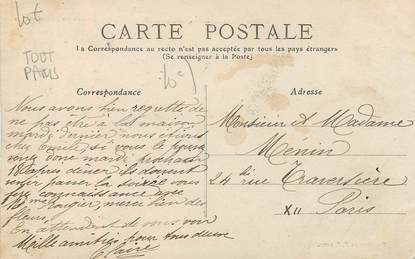 lot
TOUT
PARIS
10€
CARTE POSTALE
La Correspondance au recto n'est pas acceptée par tous les pays étrangers
(Se renseigner à la Poste)
Correspondance
Nous avons bien regretté de
ne pas être à la maison
mardi dernier nous étions
chez Emile si vous le pouvez
venez donc mardi prochain
après diner ils doivent
venir passer la soirée vous
ferez connaissance avec
Rougier, merci bien des
fleurs.
En attendant de vous voir
Meilles amitiés pour tous deux
Claire
Adresse
Monsieur et Madame
Menin
24 bis rue Traversière
XII Paris